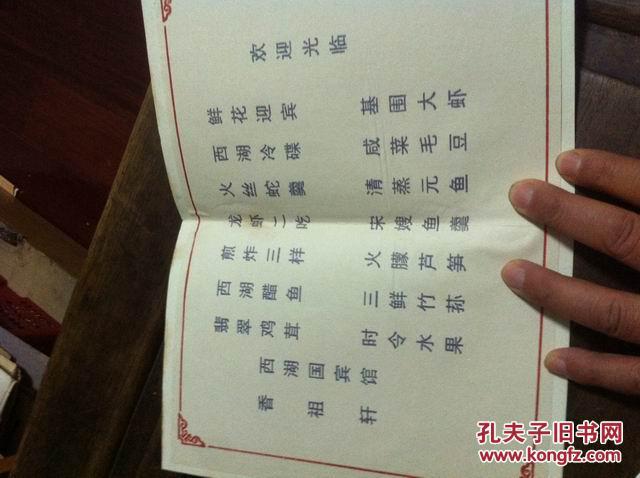 欢迎光临
鲜花迎宾
西湖冷碟
火丝蛇羹
龙虾二吃
煎炸三样
西湖醋鱼
翡翠鸡茸
基围大虾
咸菜毛豆
清蒸元鱼
宋嫂鱼羹
火朦芦笋
三鲜竹荪
时令水果
西湖国宾馆
香祖轩
孔夫子旧书网
www.kongfz.com